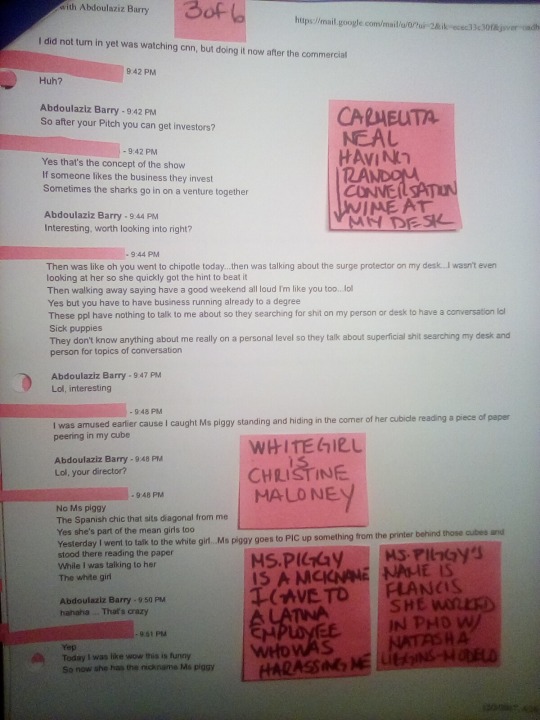 with Abdoulaziz Barry
3 of 6
I did not turn in yet was watching cnn, but doing it now after the commercial
9:42 PM
Huh?
Abdoulaziz Barry - 9:42 PM
So after your Pitch you can get investors?
- 9:42 PM
Yes that's the concept of the show
If someone likes the business they invest
Sometimes the sharks go in on a venture together
CARMELITA
NEAL
HAVING
RANDOM
CONVERSATION
W/ME AT
MY DESK
Abdoulaziz Barry - 9:44 PM
Interesting, worth looking into right?
- 9:44 PM
Then was like oh you went to chipotle today...then was talking about the surge protector on my desk...I wasn't even
looking at her so she quickly got the hint to beat it
Then walking away saying have a good weekend all loud I'm like you too...lol
Yes but you have to have business running already to a degree
These ppl have nothing to talk to me about so they searching for shit on my person or desk to have a conversation lol
Sick puppies
They don't know anything about me really on a personal level so they talk about superficial shit searching my desk and
person for topics of conversation
Abdoulaziz Barry - 9:47 PM
Lol, interesting
- 9:48 PM
I was amused earlier cause I caught Ms piggy standing and hiding in the corner of her cubicle reading a piece of paper
peering in my cube
Abdoulaziz Barry - 9:48 PM
Lol, your director?
WHITE GIRL
IS
CHRISTINE
MALONEY
- 9:48 PM
No Ms piggy
The Spanish chic that sits diagonal from me
Yes she's part of the mean girls too
Yesterday I went to talk to the white girl...Ms piggy goes to PIC up something from the printer behind those cubes and
stood there reading the paper
While I was talking to her
The white girl
Abdoulaziz Barry - 9:50 PM
hahaha ... That's crazy
- 9:51 PM
Yep
Today I was like wow this is funny
So now she has the nickname Ms piggy
MS. PIGGY
IS A NICKNAME
I GAVE TO
A LATINA
EMPLOYEE
WHO WAS
HARASSING ME
MS. PIGGY'S
NAME IS
FRANCIS
SHE WORKED
IN PMO W/
NATASHA